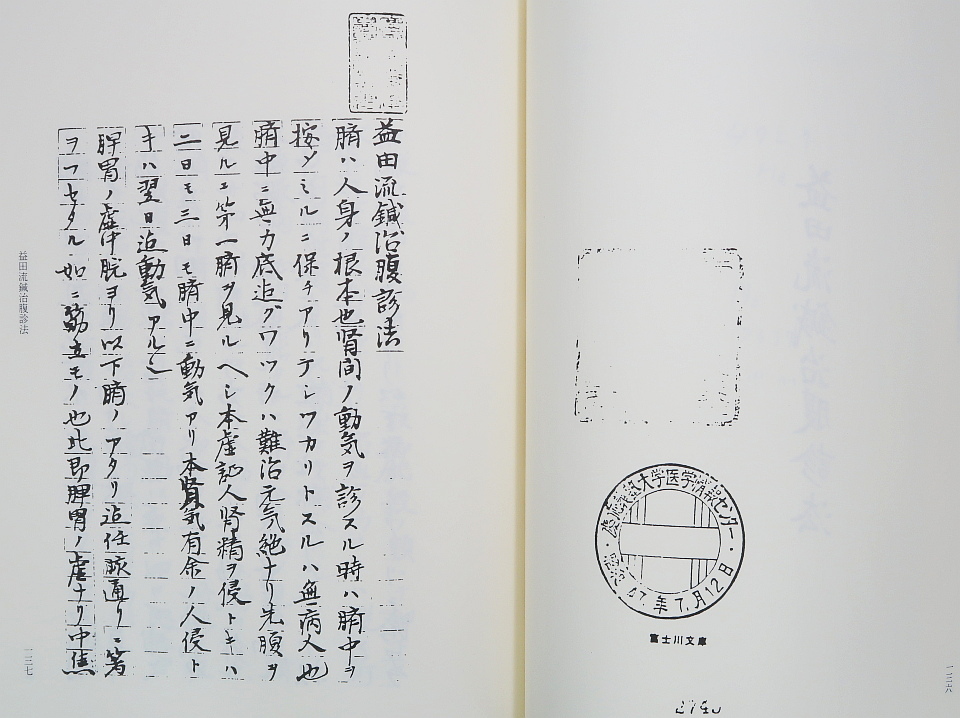 慶應義塾大学医学情報センター
47年7月12日
富士川文庫
2740
一三六
益田流鍼治腹診法
臍ハ人身ノ根本也腎間ノ動気ヲ診スル時ハ臍中ヲ
按シミルニ保チアリテシワカリトスルハ無病人也
臍中ニ無力底迄グワツクハ難治元気絶ナリ先腹ヲ
見ルニ第一臍ヲ見ルヘシ本虚証人腎精ヲ侵トキハ
二日モ三日モ臍中ニ動気アリ本腎気有余ノ人侵ト
キハ翌日迄動気アルシ
脾胃ノ虚中脘ヨリ以下臍ノアタリ迄任脈通リニ箸
ヲフセタル如ニ筋立モノ也此即脾胃ノ虚ナリ中焦
益田流鍼治腹診法
一三七